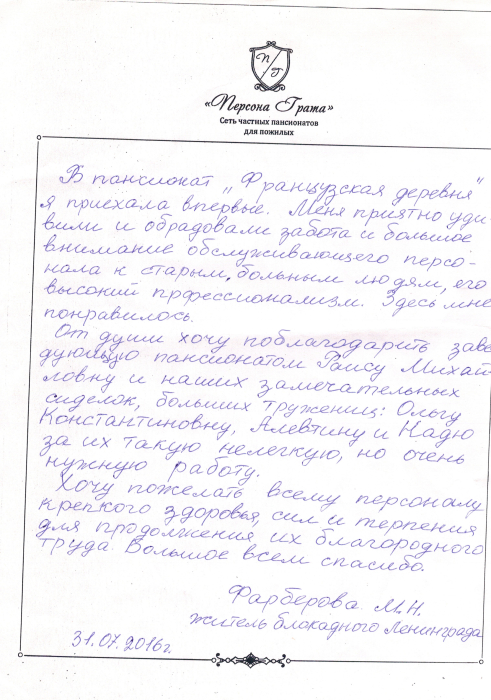 П Г
«Персона Грата»
Сеть частных пансионатов
для пожилых
В пансионат „Французская деревня"
я приехала впервые. Меня приятно уди
вили и обрадовали забота и большое
внимание обслуживающего персо-
нала к старым, больным людям, его
высокий прфессионализм. Здесь мне
понравилось.
От души хочу поблагодарить заве
дующую пансионатом Раису Михай
ловну и наших замечательных
сиделок, больших тружениц: Ольгу
Константиновну, Алевтину и Надю
за их такую нелегкую, но очень
нужную работу.
Хочу пожелать всему персоналу
крепкого здоровья, сил и терпения
для продолжения их благородного
труда. Большое всем спасибо.
Фарберова М.Н.
житель блокадного Ленинграда
31.07.2016г.